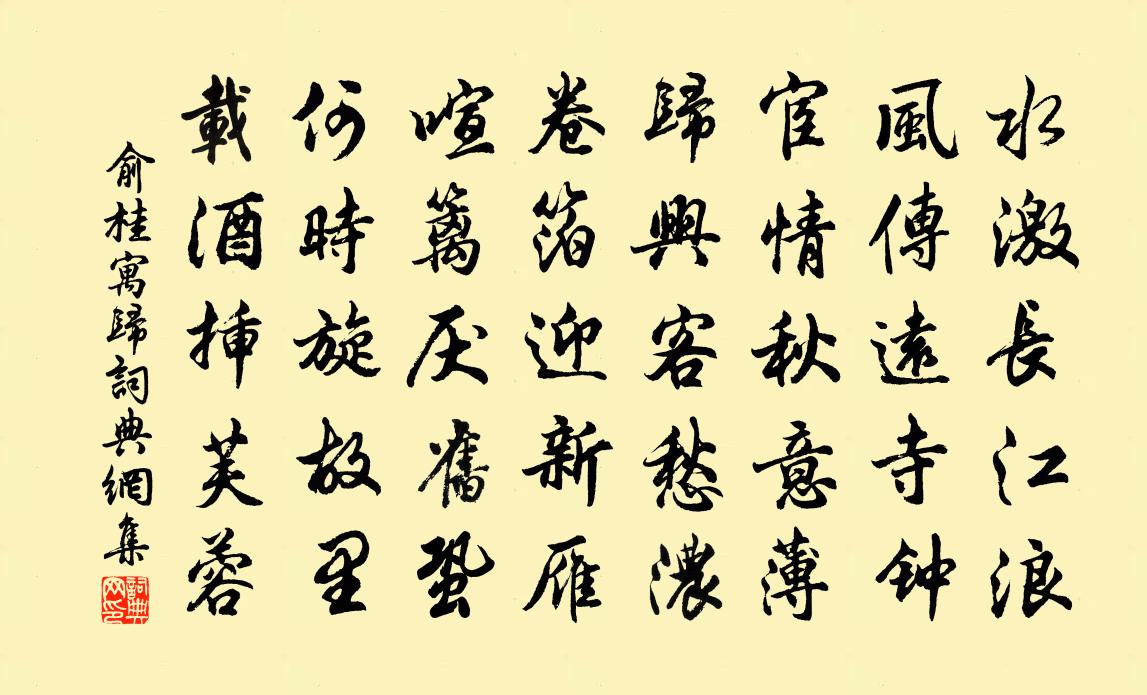 水激長江浪
風傳遠寺钟
宦情秋意薄
歸興客愁濃
卷箔迎新雁
喧籬厌舊蛩
何時旋故里
載酒挿芙蓉
俞桂寓歸詞典網集
詞典网印